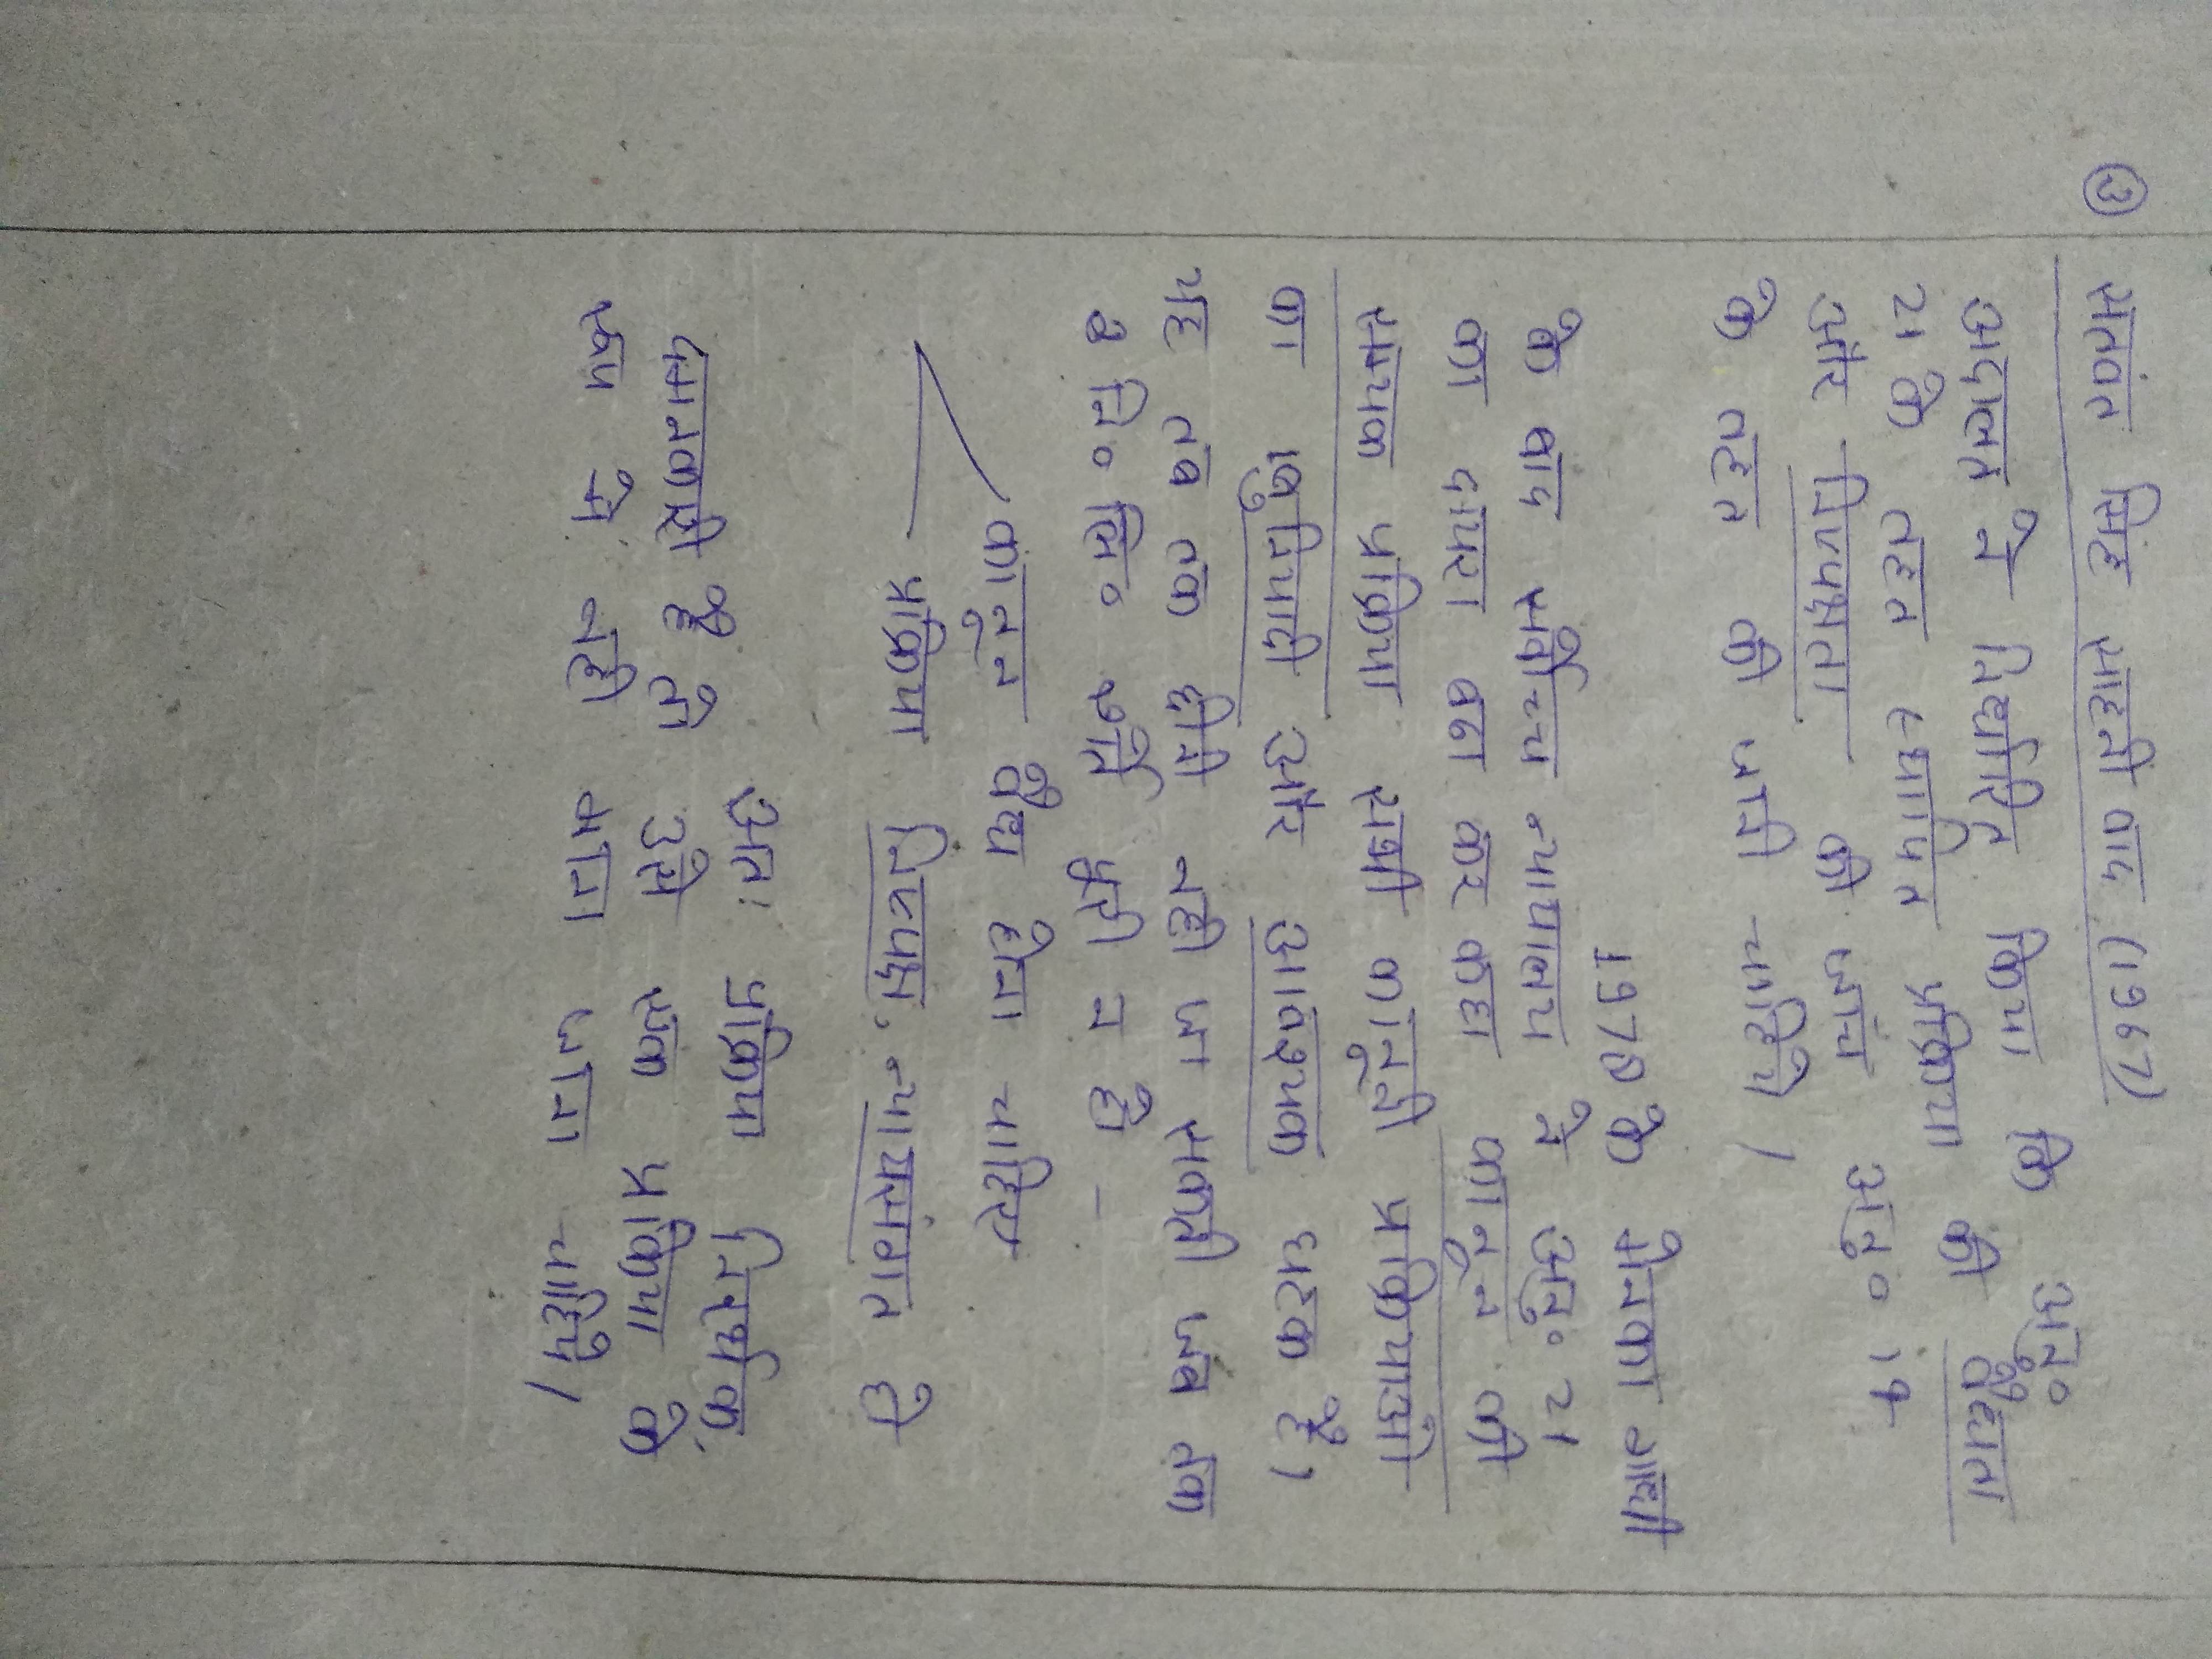 ③ सतवंत सिंह साहनी वाद (1967)
अदालत ने निर्धारित किया कि अनु०
21 के तहत स्थापित प्रक्रिया की वैधता
और निष्पक्षता की जांच अनु० 14
के तहत की जानी चाहिये।
1978 के मेनका गाँधी
के बाद सर्वोच्च न्यायालय ने अनु० 21
का दायरा बढा कर कहा कानून की
सम्यक प्रक्रिया सभी कानूनी प्रक्रियाओं
का बुनियादी और आवश्यक घटक है।
यह तब तक छीनी नही जा सकती जब तक
कि नि० लि० शर्तें पूरी न हो –
कानून वैध होना चाहिए
प्रक्रिया निष्पक्ष, न्यायसंगत हो
अतः प्रक्रिया निरर्थक,
दमनकारी है तो उसे एक प्रक्रिया के
रूप में नही माना जाना चाहिये।